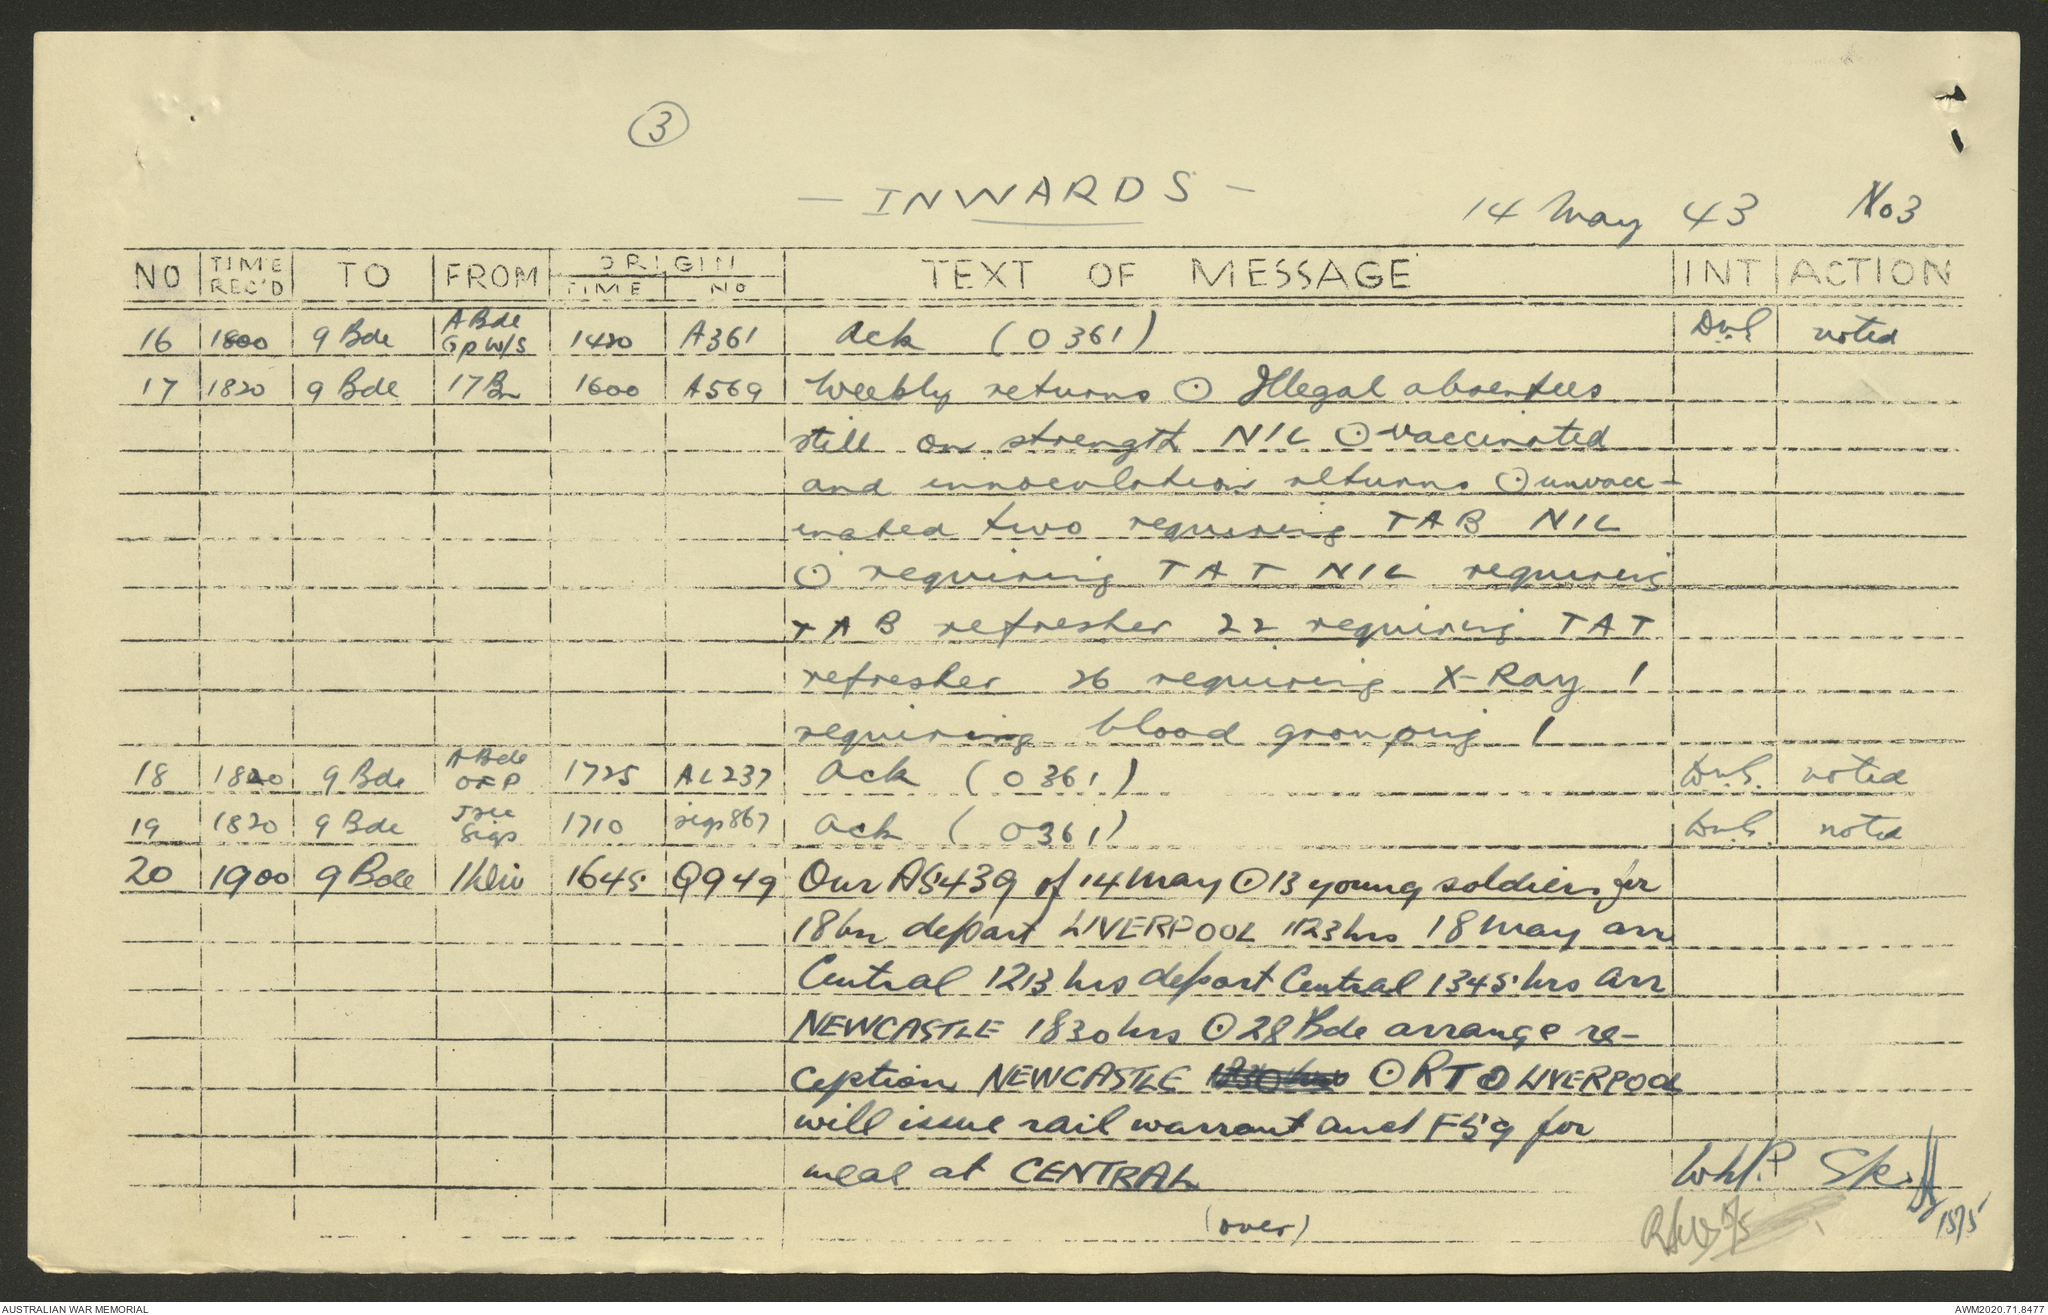 3
- INWARDS -
14 May 43 No 3
NO TIME REC'D TO FROM ORIGIN TIME NO TEXT OF MESSAGE INT ACTION
16 1800 9 Bde A Bde Gp W/S 1420 A361 Ack (O 361) noted
17 1820 9 Bde 17 Bn 1600 A569 Weekly returns ⊙ Illegal absentees
still on strength NIL ⊙ vaccinated
and innoculation returns ⊙ unvacc-
inated two requiring TAB NIL
⊙ requiring TAT NIL requiring
TAB refresher 22 requiring TAT
refresher 26 requiring X-Ray 1
requiring blood grouping 1
18 1820 9 Bde A Bde OFP 1725 AL237 Ack (O 361) noted
19 1820 9 Bde Sigs 1710 sigs867 Ack (O361) noted
20 1900 9 Bde 1 Div 1645 Q949 Our AS439 of 14 May ⊙ 13 young soldiers for
18 bn depart LIVERPOOL 1123 hrs 18 May arr
Central 1213 hrs depart Central 1345 hrs arr
NEWCASTLE 1830 hrs ⊙ 28 Bde arrange re-
ception NEWCASTLE ⊙ RTO LIVERPOOL
will issue rail warrant and F59 for
meal at CENTRAL
(over)
15/5
AUSTRALIAN WAR MEMORIAL
AWM2020.71.8477